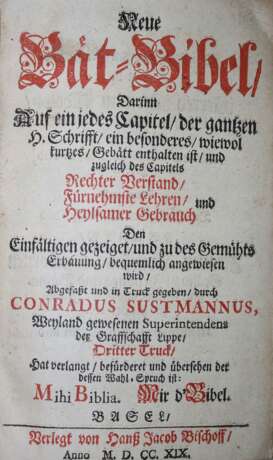 Neue
Bät-Bibel/
Darinn
Auf ein jedes Capitel/ der gantzen
H. Schrifft/ ein besonderes/ wiewol
kurtzes/ Gebätt enthalten ist/ und
zugleich des Capitels
Rechter Verstand/
Fürnehmste Lehren/ und
Heylsamer Gebrauch
Den
Einfältigen gezeiget/ und zu des Gemühts
Erbäuung/ bequemlich angewiesen
wird/
Abgefaßt und in Truck gegeben/ durch
CONRADUS SUSTMANNUS,
Weyland gewesenen Superintendens
der Graffschafft Lippe/
Dritter Truck/
Hat verlangt/ befürderet und übersehen der
dessen Wahl-Spruch ist:
Mihi Biblia. Mir d'Bibel.
BASEL/
Verlegt von Hanß Jacob Bischoff/
Anno M. D. CC. XIX.